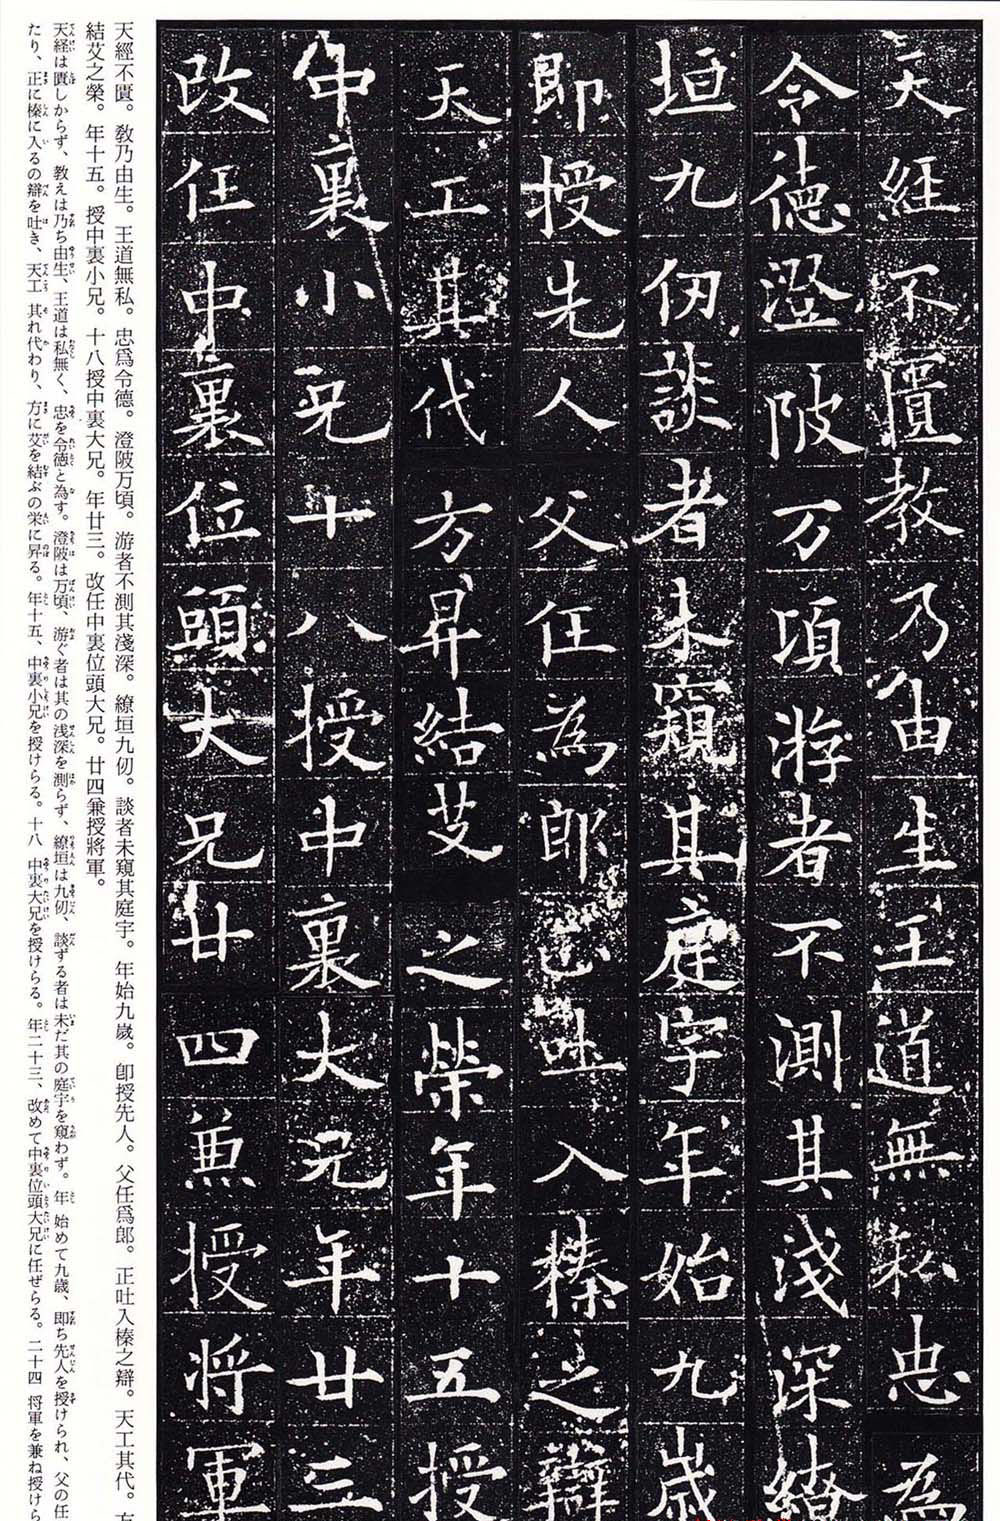 天經不匱教乃由生王道無私忠為
令德澄陂万頃游者不測其淺深繚
垣九仞談者未窺其庭宇年始九歲
即授先人父任為郎正吐入榛之辯
天工其代方昇結艾之榮年十五授
中裏小兄十八授中裏大兄年廿三
改任中裏位頭大兄廿四兼授将軍
天經不匱。敎乃由生。王道無私。忠爲令德。澄陂万頃。游者不測其淺深。繚垣九仞。談者未窺其庭宇。年始九歲。卽授先人。父任爲郎。正吐入榛之辯。天工其代。方
結艾之榮。年十五。授中裏小兄。十八授中裏大兄。年廿三。改任中裏位頭大兄。廿四兼授將軍。
天経は匱しからず、教えは乃ち由生、王道は私無く、忠を令徳と為す。澄陂は万頃、游ぐ者は其の浅深を測らず、繚垣は九仞、談ずる者は未だ其の庭宇を窺わず。年 始めて九歳、即ち先人を授けられ、父の任
たり、正に榛に入るの辯を吐き、天工 其れ代わり、方に艾を結ぶの栄に昇る。年十五、中裏小兄を授けらる。十八 中裏大兄を授けらる。年二十三、改めて中裏位頭大兄に任ぜらる。二十四 将軍を兼ね授けら